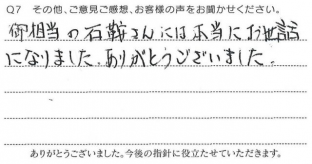 Q7 その他、ご意見ご感想、お客様の声をお聞かせください。
御担当の石鞍さんには本当にお世話
になりました。ありがとうございました。
ありがとうございました。今後の指針に役立たせていただきます。